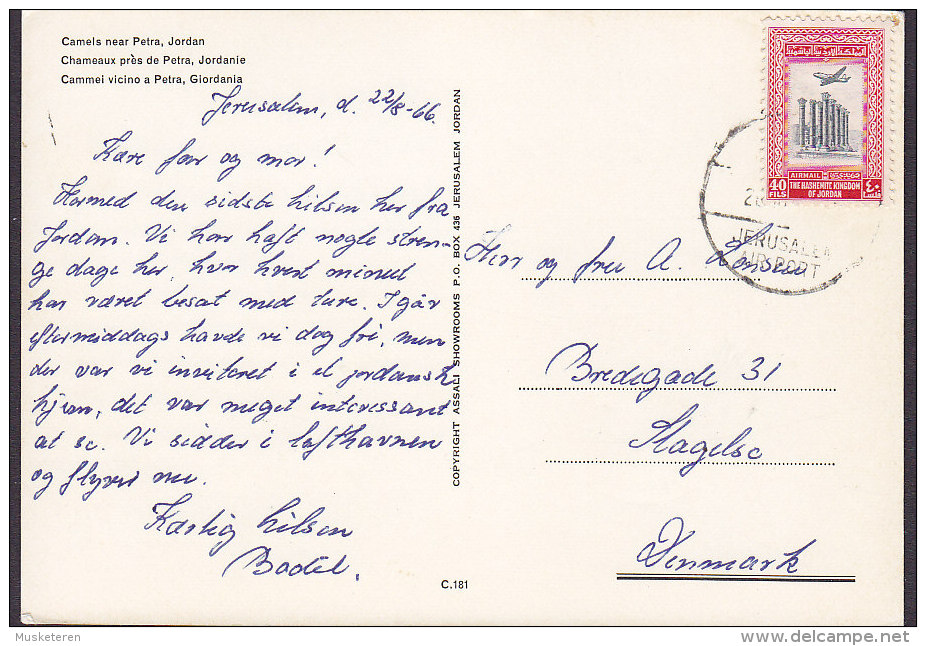 Camels near Petra, Jordan
Chameaux près de Petra, Jordanie
Cammei vicino a Petra, Giordania
Jerusalem, d. 22/8-66.
Kære far og mor!
Hermed den sidste hilsen her fra
Jordan. Vi har haft nogle stren-
ge dage her, hvor hvert minut
har været besat med ture. I går
eftermiddags havde vi dog fri, men
der var vi inviteret i et jordansk
hjem, det var meget interessant
at se. Vi sidder i lufthavnen
og flyver nu.
Kærlig hilsen
Bodil.
COPYRIGHT ASSALI SHOWROOMS P.O. BOX 436 JERUSALEM JORDAN
C.181
AIRMAIL
40 FILS
THE HASHEMITE KINGDOM
OF JORDAN
٤٠
JERUSALEM
AIRPORT
Herr og fru A.
Bredegade 31
Slagelse
Denmark
Musketeren
delcampe.net